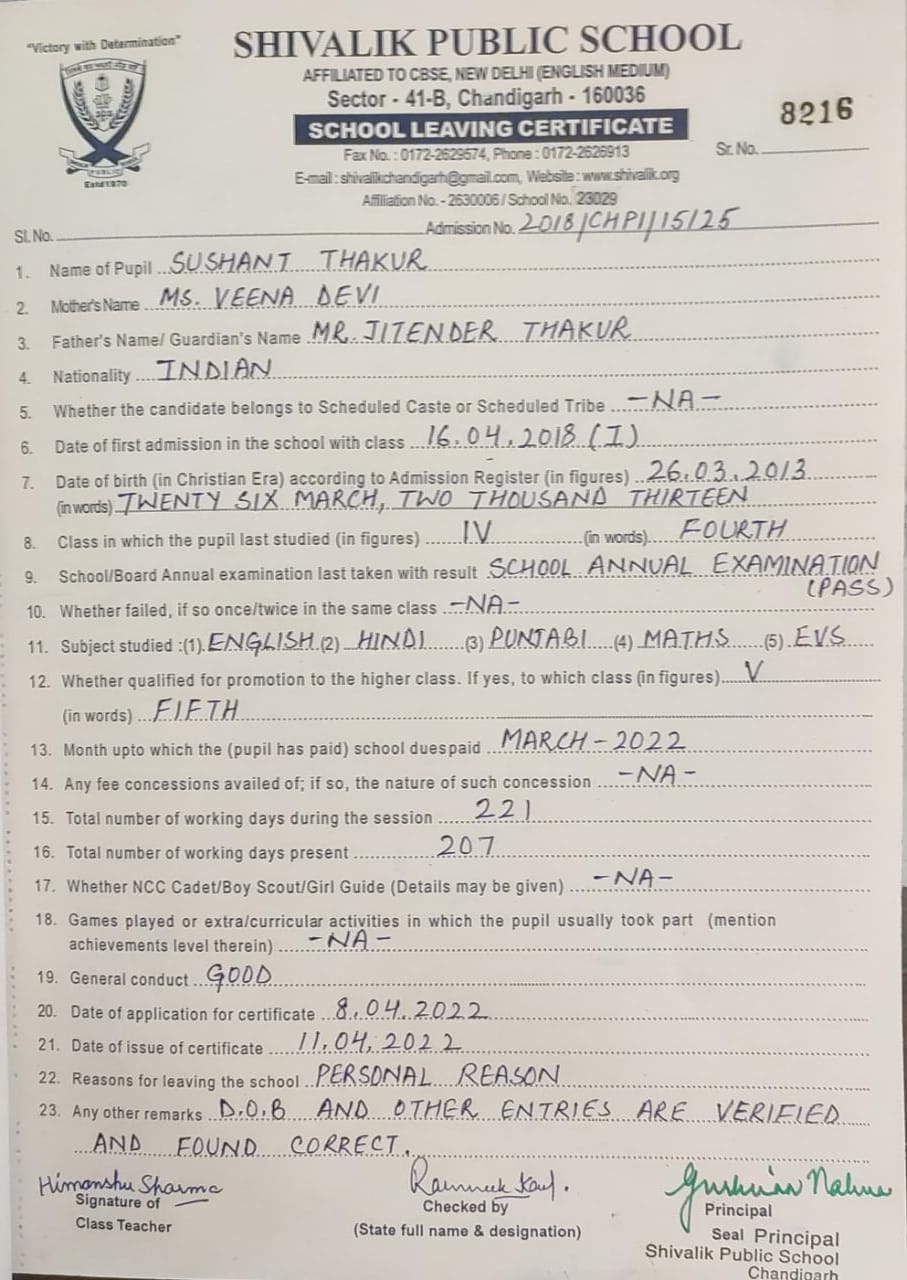 "Victory with Determination"
SHIVALIK PUBLIC SCHOOL
AFFILIATED TO CBSE, NEW DELHI (ENGLISH MEDIUM)
Sector - 41-B, Chandigarh - 160036
SCHOOL LEAVING CERTIFICATE
8216
Fax No. : 0172-2629574, Phone : 0172-2626913
Sr. No.
E-mail : shivalikchandigarh@gmail.com, Website : www.shivalik.org
Estd 1970
Affiliation No. - 2630006 / School No. 23029
Sl. No. Admission No. 2018/CHPI/15/25
1. Name of Pupil SUSHANT THAKUR
2. Mother's Name MS. VEENA DEVI
3. Father's Name/ Guardian's Name MR. JITENDER THAKUR
4. Nationality INDIAN
5. Whether the candidate belongs to Scheduled Caste or Scheduled Tribe -NA-
6. Date of first admission in the school with class 16.04.2018 (I)
7. Date of birth (in Christian Era) according to Admission Register (in figures) 26.03.2013
(in words) TWENTY SIX MARCH, TWO THOUSAND THIRTEEN
8. Class in which the pupil last studied (in figures) IV (in words) FOURTH
9. School/Board Annual examination last taken with result SCHOOL ANNUAL EXAMINATION
(PASS)
10. Whether failed, if so once/twice in the same class -NA-
11. Subject studied :(1) ENGLISH (2) HINDI (3) PUNJABI (4) MATHS (5) EVS
12. Whether qualified for promotion to the higher class. If yes, to which class (in figures) V
(in words) FIFTH
13. Month upto which the (pupil has paid) school duespaid MARCH-2022
14. Any fee concessions availed of; if so, the nature of such concession -NA-
15. Total number of working days during the session 221
16. Total number of working days present 207
17. Whether NCC Cadet/Boy Scout/Girl Guide (Details may be given) -NA-
18. Games played or extra/curricular activities in which the pupil usually took part (mention
achievements level therein) -NA-
19. General conduct GOOD
20. Date of application for certificate 8.04.2022
21. Date of issue of certificate 11.04.2022
22. Reasons for leaving the school PERSONAL REASON
23. Any other remarks D.O.B AND OTHER ENTRIES ARE VERIFIED
AND FOUND CORRECT.
Himanshu Sharma
Signature of
Class Teacher
Checked by
(State full name & designation)
Principal
Seal Principal
Shivalik Public School
Chandigarh